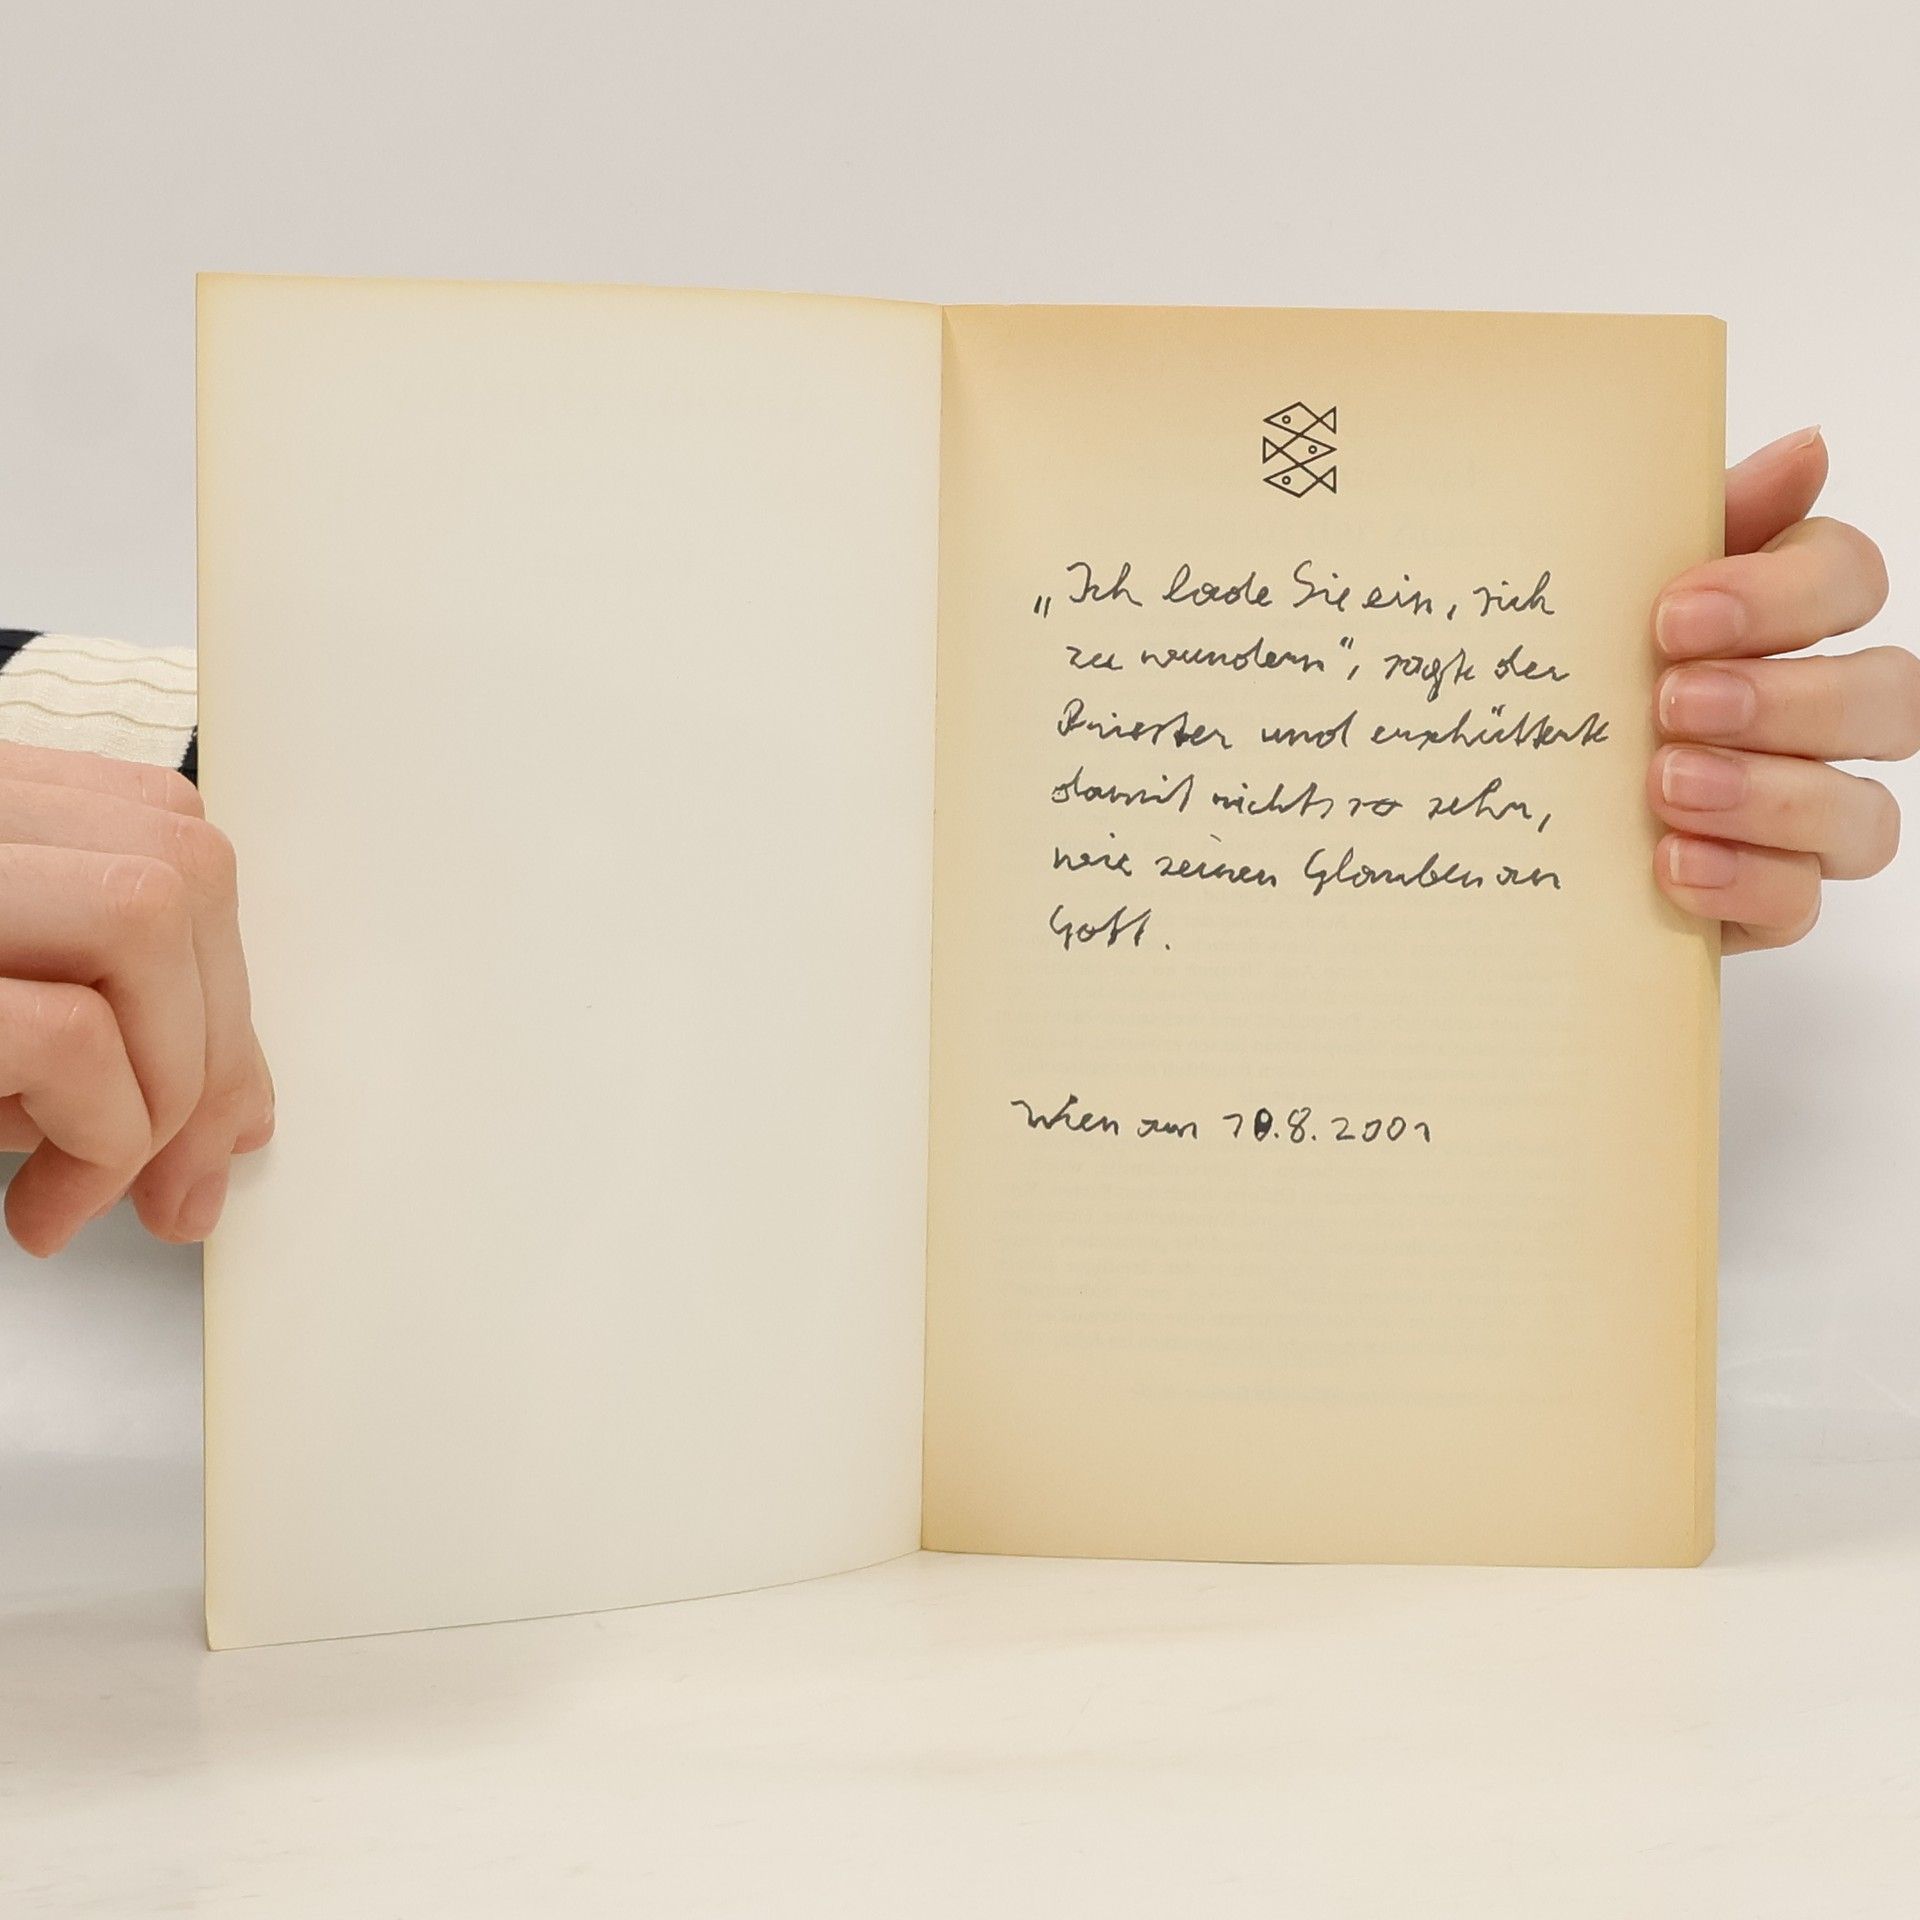 „Ich lade Sie ein, sich
zu wundern“, sagte der
Priester und erschütterte
damit nichts so sehr,
wie seinen Glauben an
Gott.
Wien am 10.8.2001